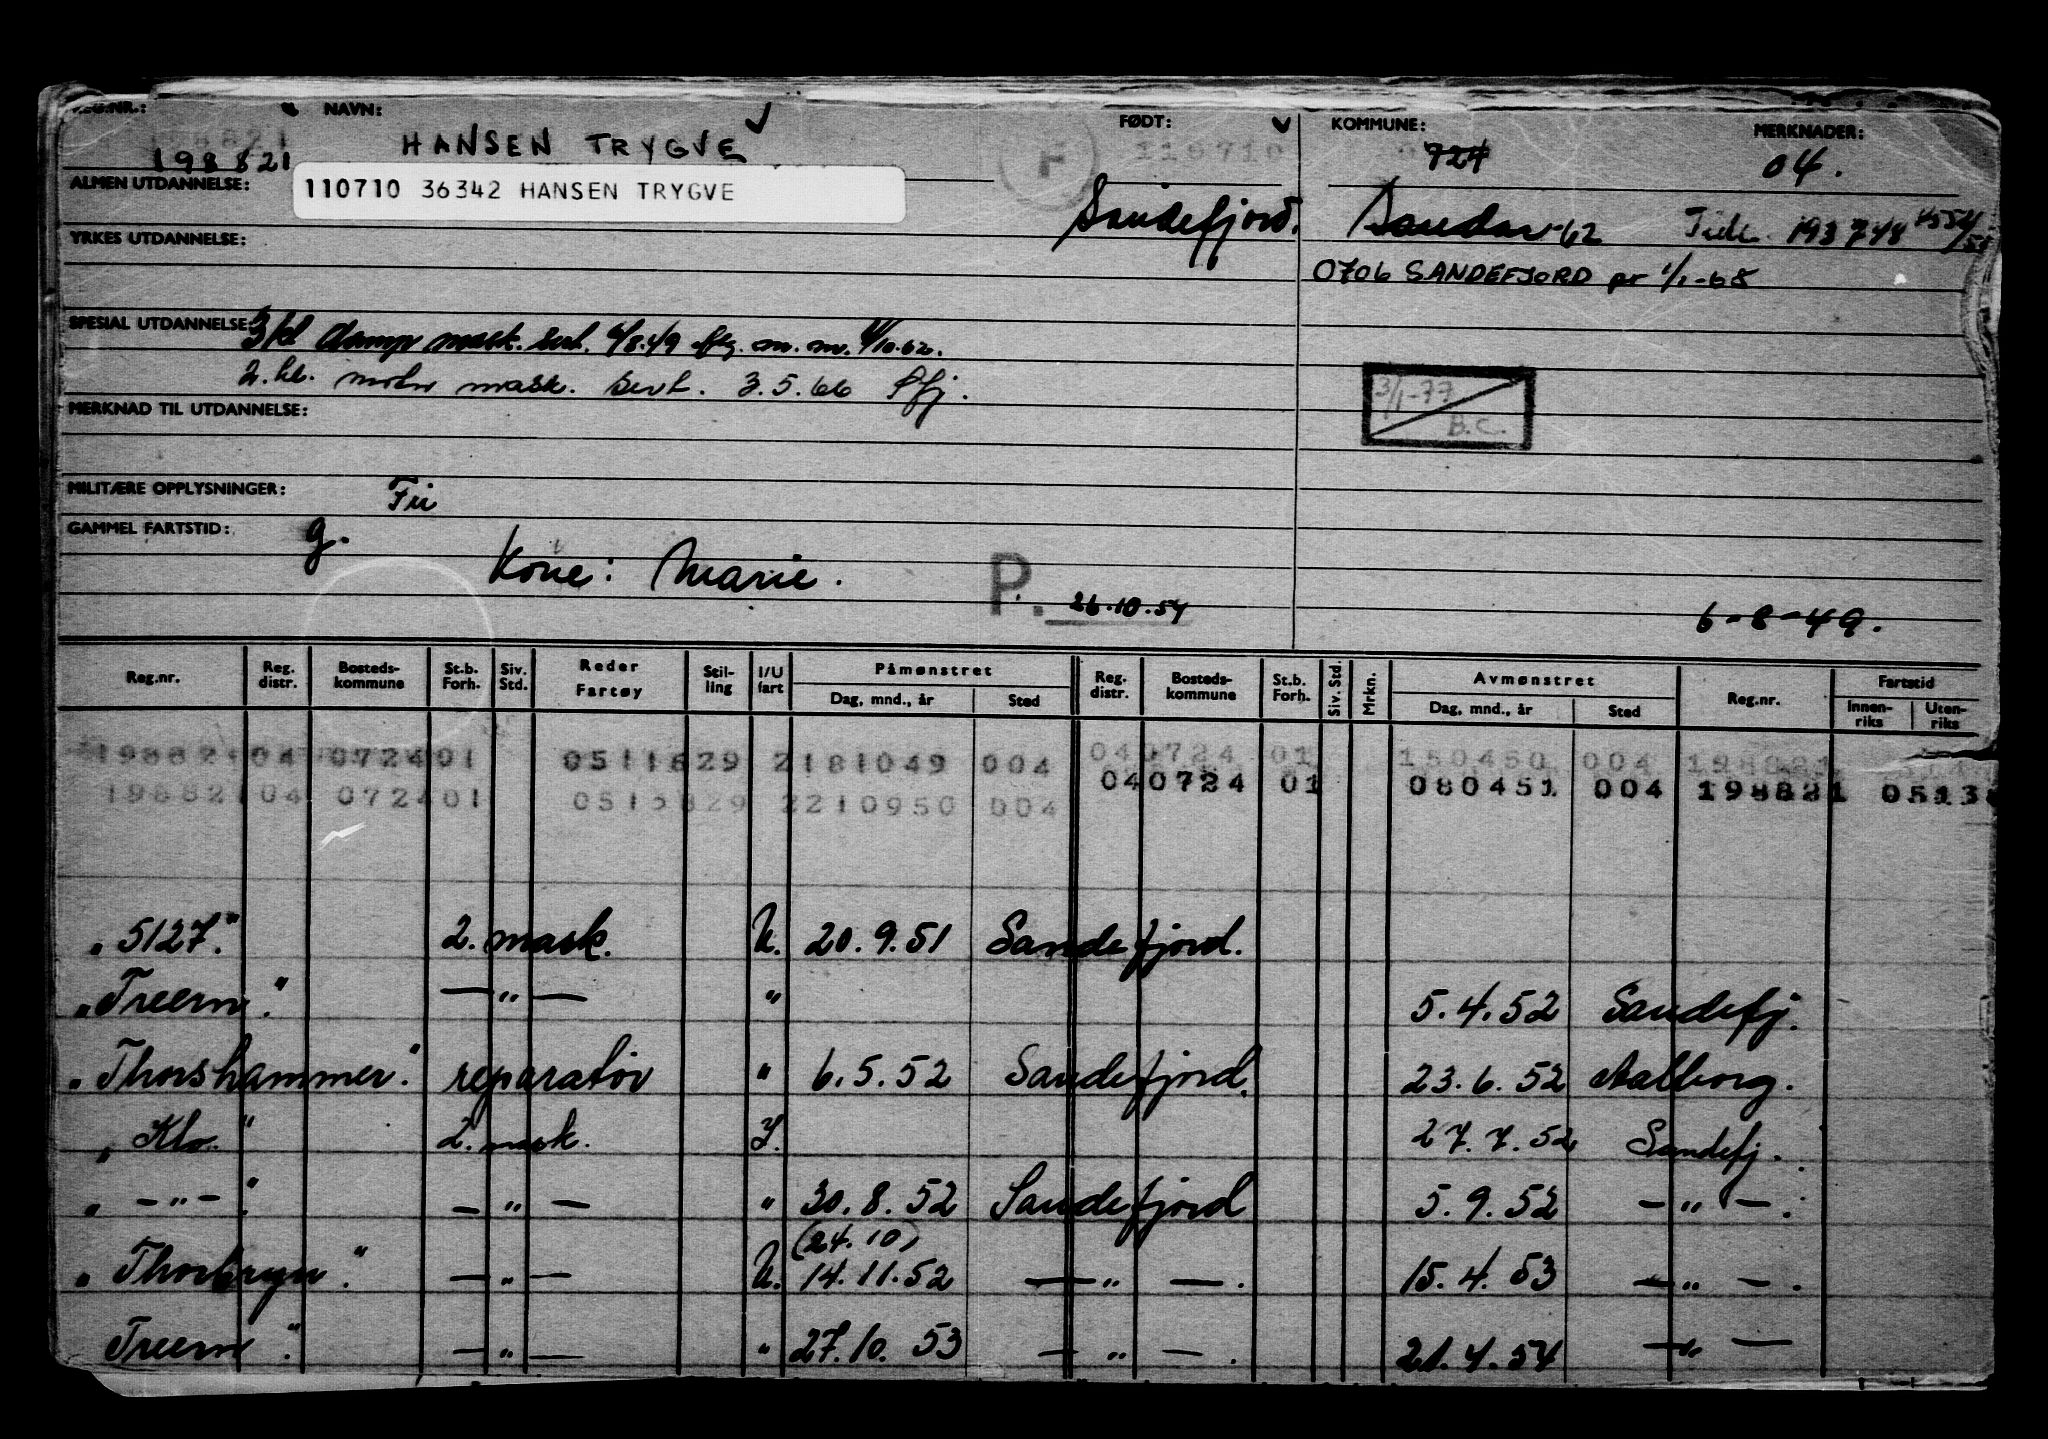 REG.NR.: NAVN: FØDT: KOMMUNE: MERKNADER:
198821 HANSEN TRYGVE F 110710 724 04.
ALMEN UTDANNELSE: 110710 36342 HANSEN TRYGVE
Sandefjord. Sandar-62 193744
YRKES UTDANNELSE:
0706 SANDEFJORD pr 1/1-68
SPESIAL UTDANNELSE: 3 kl damp mask. sert. 6/8.49 m.m. 4/10.62.
2. kl. motor mask. sert. 3.5.66 Sfj.
3/1-77
B.C.
MERKNAD TIL UTDANNELSE:
MILITÆRE OPPLYSNINGER: Fri
GAMMEL FARTSTID: g.
Kone: Marie. P. 26.10.54
6-8-49.
Reg.nr. Reg. distr. Bosteds-kommune St.b. Forh. Siv. Std. Reder Fartøy Stil-ling I/U fart Påmønstret Dag, mnd., år Sted Reg. distr. Bosteds-kommune St.b. Forh. Siv. Std. Mrkn. Avmønstret Dag, mnd., år Sted Reg.nr. Fartstid Innen-riks Uten-riks
198821 04 0724 01 0511829 2 181049 004 04 0724 01 150450 004 198821
198821 04 0724 01 0515829 2 210950 004 04 0724 01 080451 004 198821 0513
"5127." 2. mask. U. 20.9.51 Sandefjord.
"Treern". — " — " 5.4.52 Sandefj.
"Thorshammer". reparatør " 6.5.52 Sandefjord. 23.6.52 Aalborg.
"Klo" 2. mask. I. 27.7.52 Sandefj.
" — " — ". — " — " 30.8.52 Sandefjord 5.9.52 — " — .
(24.10)
"Thorbryn". — " — U. 14.11.52 — " — . 15.4.53 — " — .
Treern". — " — " 27.10.53 — " — . 21.4.54 — " —